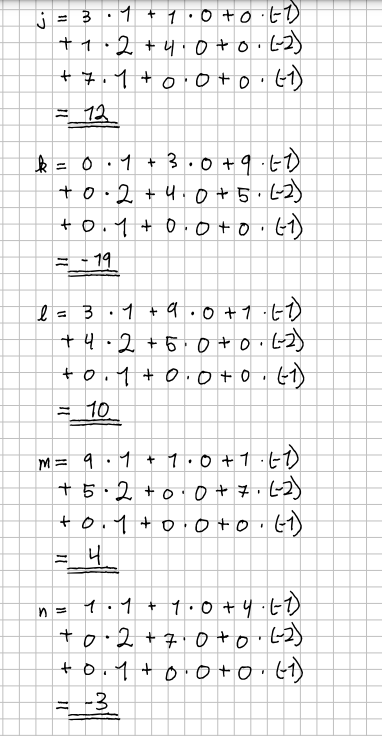 j = 3 · 1 + 1 · 0 + 0 · (-1)
+ 1 · 2 + 4 · 0 + 0 · (-2)
+ 7 · 1 + 0 · 0 + 0 · (-1)
= 12
k = 0 · 1 + 3 · 0 + 9 · (-1)
+ 0 · 2 + 4 · 0 + 5 · (-2)
+ 0 · 1 + 0 · 0 + 0 · (-1)
= -19
l = 3 · 1 + 9 · 0 + 1 · (-1)
+ 4 · 2 + 5 · 0 + 0 · (-2)
+ 0 · 1 + 0 · 0 + 0 · (-1)
= 10
m = 9 · 1 + 1 · 0 + 1 · (-1)
+ 5 · 2 + 0 · 0 + 7 · (-2)
+ 0 · 1 + 0 · 0 + 0 · (-1)
= 4
n = 1 · 1 + 1 · 0 + 4 · (-1)
+ 0 · 2 + 7 · 0 + 0 · (-2)
+ 0 · 1 + 0 · 0 + 0 · (-1)
= -3